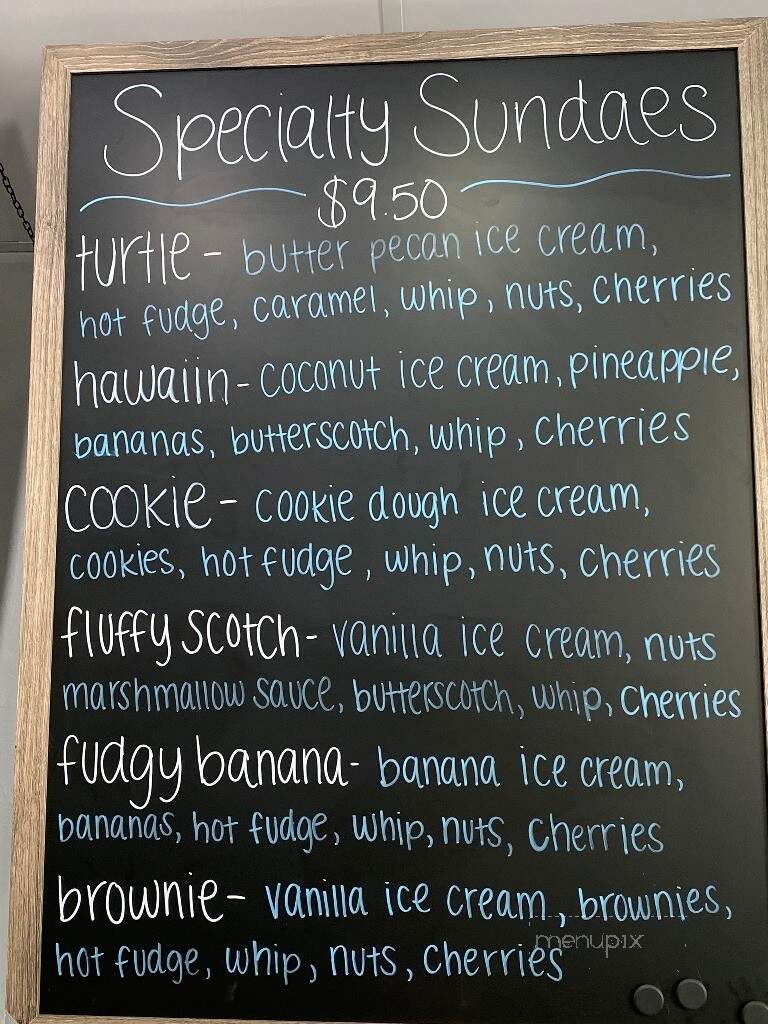 Specialty Sundaes
$9.50
turtle - butter pecan ice cream,
hot fudge, caramel, whip, nuts, cherries
hawaiin - coconut ice cream, pineapple,
bananas, butterscotch, whip, cherries
cookie - cookie dough ice cream,
cookies, hot fudge, whip, nuts, cherries
fluffy scotch - vanilla ice cream, nuts
marshmallow sauce, butterscotch, whip, cherries
fudgy banana - banana ice cream,
bananas, hot fudge, whip, nuts, cherries
brownie - vanilla ice cream, brownies,
hot fudge, whip, nuts, cherries
menupix